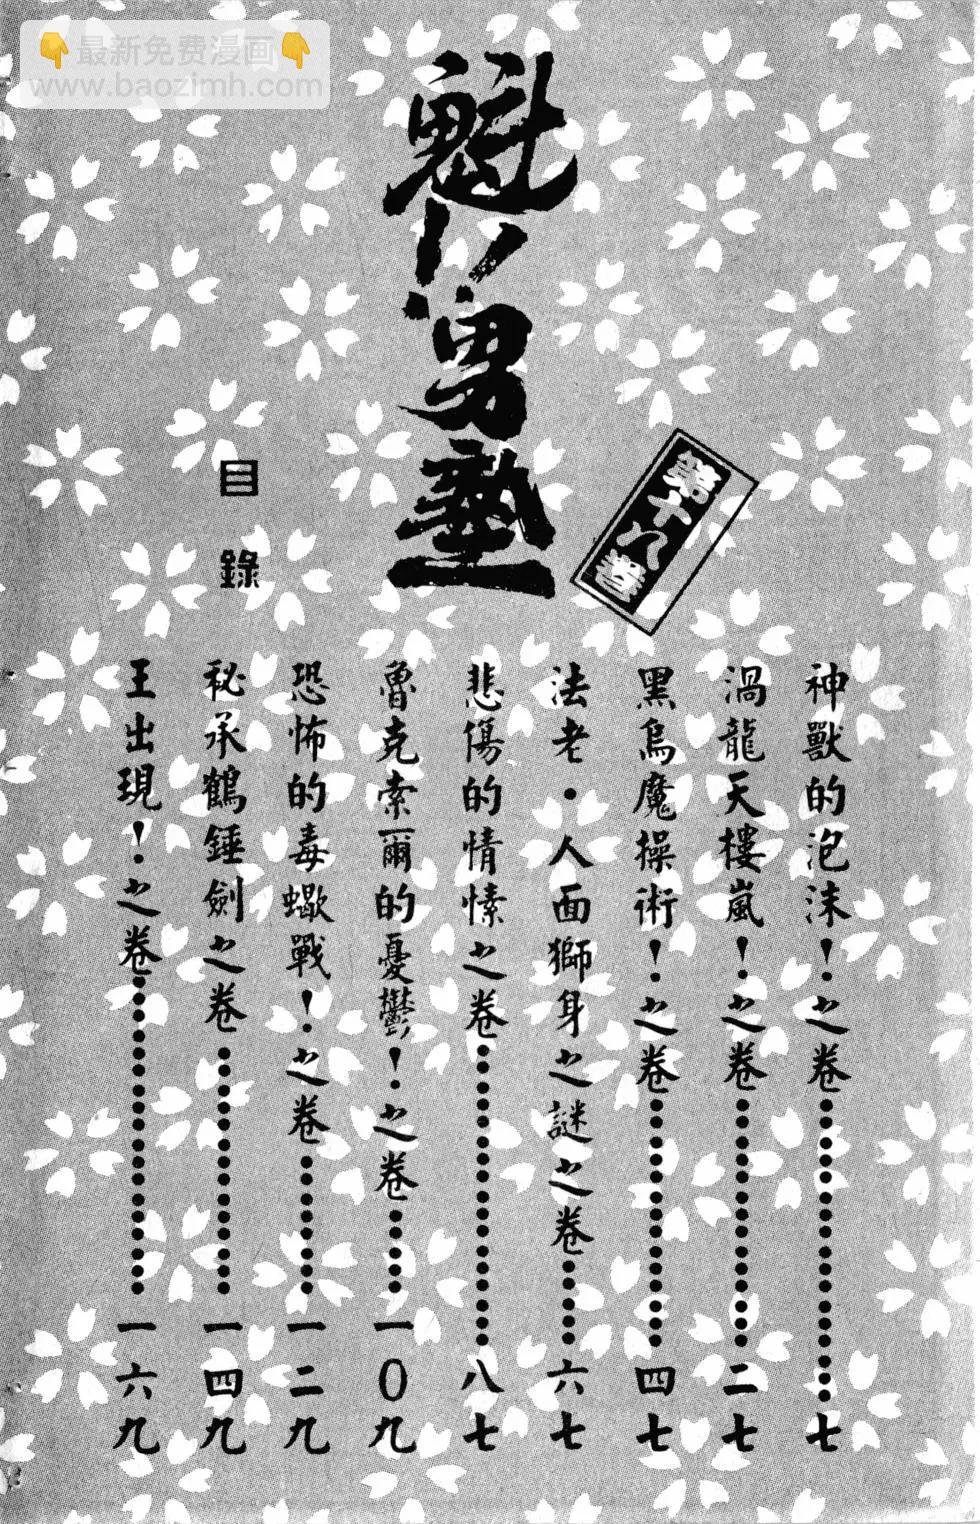 👇最新免费漫画👇
www.baozimh.com
魁!!男塾
第十八卷
目錄
神獸的泡沫!之卷……七
渦龍天樓嵐!之卷……二七
黑烏魔操術!之卷……四七
法老・人面獅身之謎之卷……六七
悲傷的情愫之卷……八七
魯克索爾的憂鬱!之卷……一〇九
恐怖的毒蠍戰!之卷……一二九
秘承鶴錘劍之卷……一四九
王出現!之卷……一六九